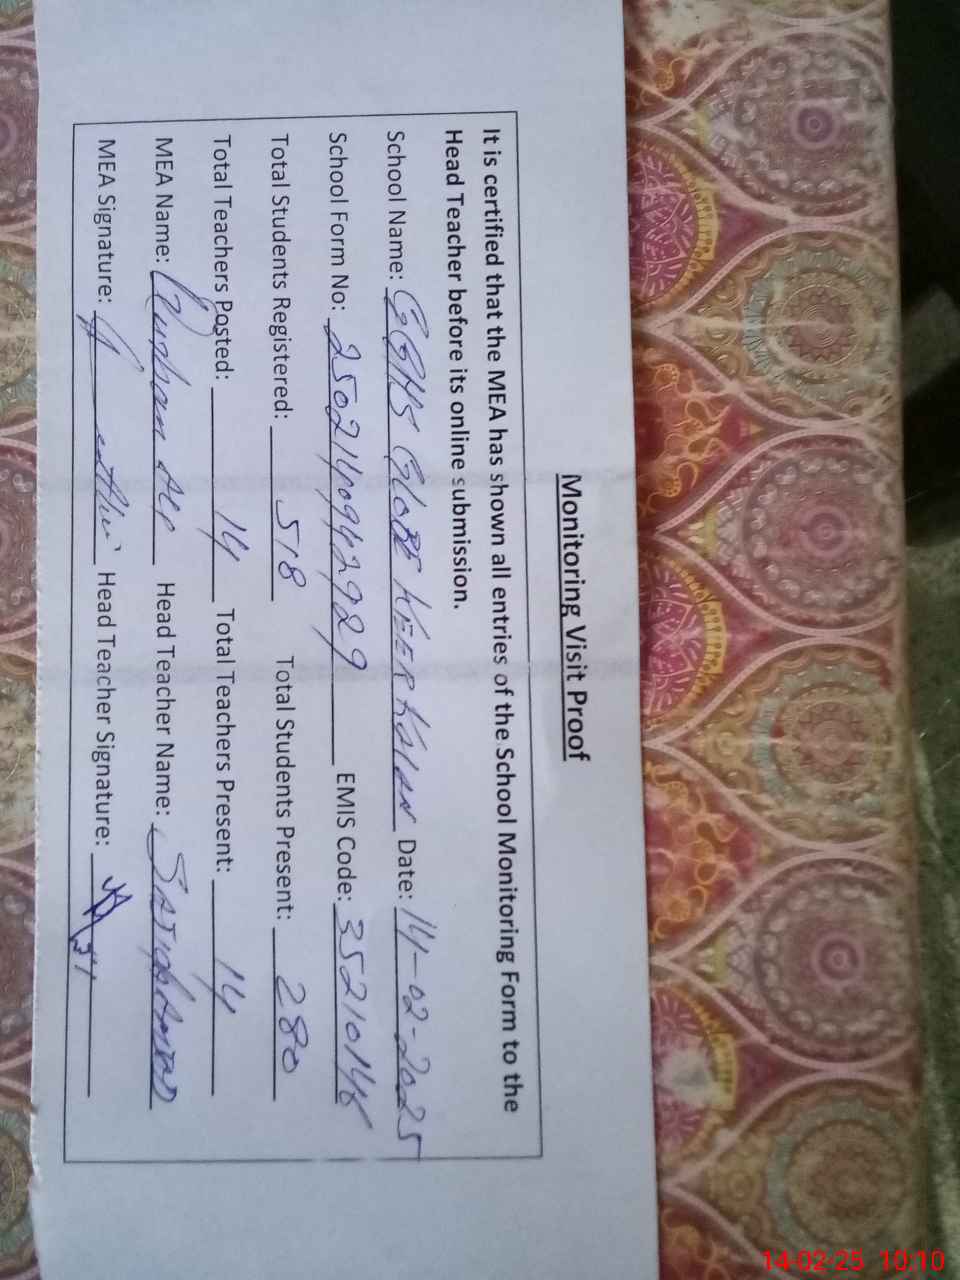 Monitoring Visit Proof
It is certified that the MEA has shown all entries of the School Monitoring Form to the
Head Teacher before its online submission.
School Name: GGHS GLOBE KEER KALAN Date: 14-02-2025
School Form No: 2502140942929 EMIS Code: 35210148
Total Students Registered: 518 Total Students Present: 280
Total Teachers Posted: 14 Total Teachers Present: 14
MEA Name: Head Teacher Name:
MEA Signature: Head Teacher Signature:
14-02-25 10:10